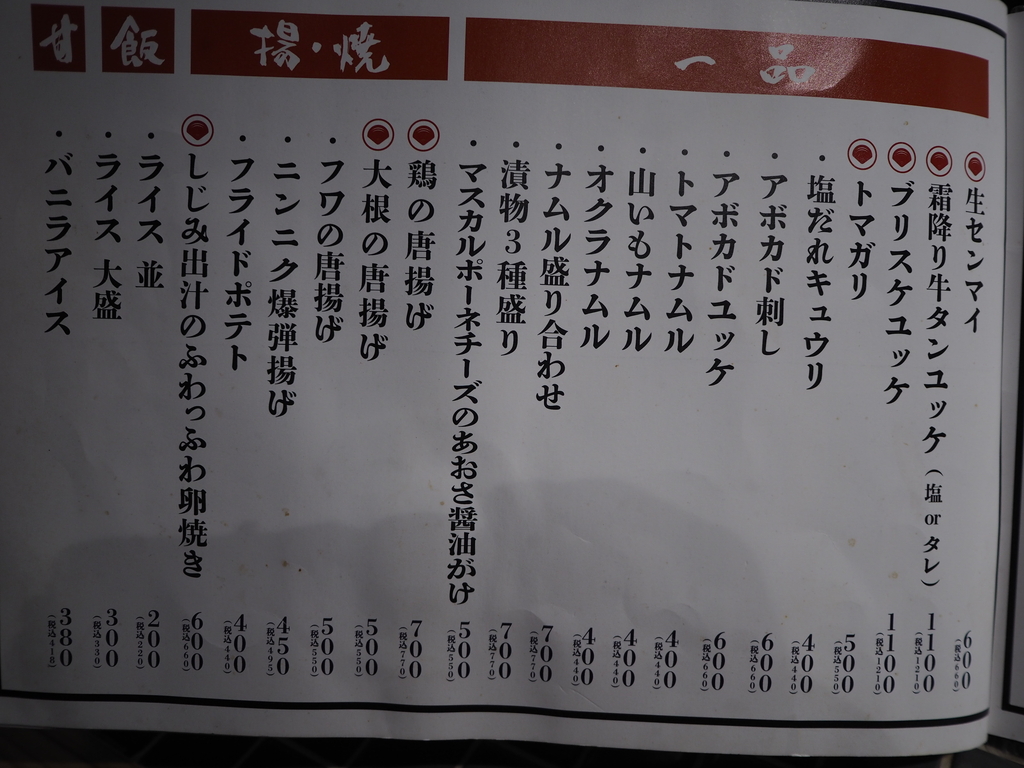 一品
生センマイ 600 (税込660)
霜降り牛タンユッケ(塩 or タレ) 1100 (税込1210)
ブリスケユッケ 1100 (税込1210)
トマガリ 500 (税込550)
・塩だれキュウリ 400 (税込440)
・アボカド刺し 600 (税込660)
・アボカドユッケ 600 (税込660)
・トマトナムル 400 (税込440)
・山いもナムル 400 (税込440)
・オクラナムル 400 (税込440)
・ナムル盛り合わせ 700 (税込770)
・漬物3種盛り 700 (税込770)
・マスカルポーネチーズのあおさ醤油がけ 500 (税込550)
揚・焼
鶏の唐揚げ 700 (税込770)
大根の唐揚げ 500 (税込550)
・フワの唐揚げ 500 (税込550)
・ニンニク爆弾揚げ 450 (税込495)
・フライドポテト 400 (税込440)
しじみ出汁のふわっふわ卵焼き 600 (税込660)
飯
・ライス 並 200 (税込220)
・ライス 大盛 300 (税込330)
甘
・バニラアイス 380 (税込418)